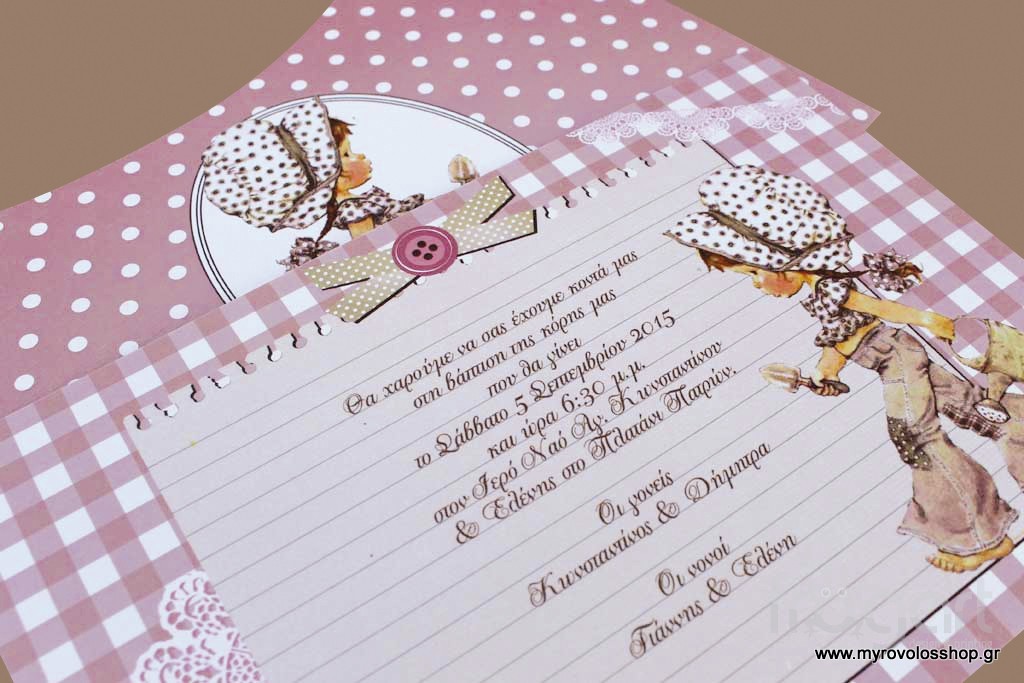 Θα χαρούμε να σας έχουμε κοντά μας
στη βάπτιση της κόρης μας
που θα γίνει
το Σάββατο 5 Σεπτεμβρίου 2015
και ώρα 6:30 μ.μ.
στον Ιερό Ναό Αγ. Κωνσταντίνου
& Ελένης στο Πλατάνι Πατρών.
Οι γονείς
Κωνσταντίνος & Δήμητρα
Οι νονοί
Γιάννης & Ελένη
www.myrovolosshop.gr